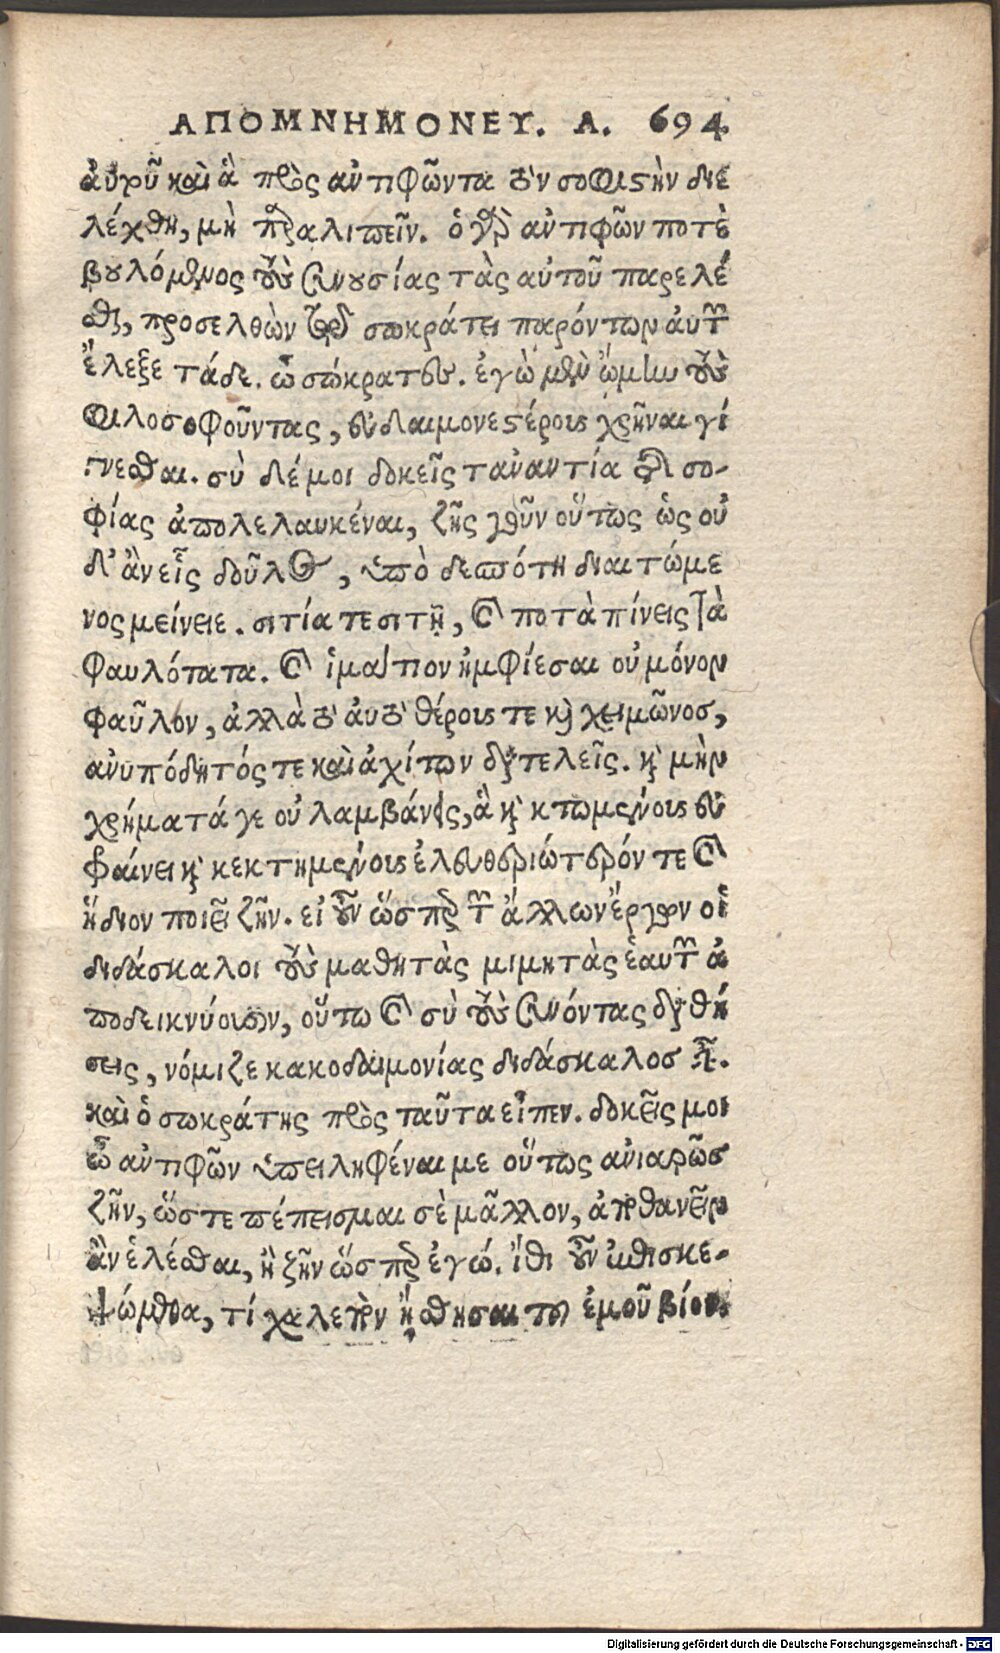 ΑΠΟΜΝΗΜΟΝΕΥ. Α. 694
αὐτοῦ καὶ ἃ πρὸς ἀντιφῶντα τὸν σοφιστὴν διε
λέχθη, μὴ παραλιπεῖν. ὁ γὰρ ἀντιφῶν ποτὲ
βουλόμενος τοὺς συνουσίας τὰς αὐτοῦ παρελέ
σθαι, προσελθὼν τῷ σωκράτει παρόντων αὐτῶν
ἔλεξε τάδε. ὦ σώκρατες. ἐγὼ μὲν ᾤμην τοὺς
φιλοσοφοῦντας, εὐδαιμονεστέρους χρῆναι γί
γνεσθαι. σὺ δέ μοι δοκεῖς τἀναντία τῆς σο-
φίας ἀπολελαυκέναι, ζῆς γοῦν οὕτως ὡς οὐ
δ' ἂν εἷς δοῦλος, ὑπὸ δεσπότῃ διαιτώμε
νος μείνειε. σιτία τε σιτῇ, καὶ ποτὰ πίνεις τὰ
φαυλότατα. καὶ ἱμάτιον ἠμφίεσαι οὐ μόνον
φαῦλον, ἀλλὰ τὸ αὐτὸ θέρους τε καὶ χειμῶνος,
ἀνυπόδητός τε καὶ ἀχίτων διατελεῖς. καὶ μὴν
χρήματά γε οὐ λαμβάνεις, ἃ καὶ κτωμένους εὐ
φαίνει καὶ κεκτημένους ἐλευθεριώτερόν τε καὶ
ἥδιον ποιεῖ ζῆν. εἰ οὖν ὥσπερ τῶν ἄλλων ἔργων οἱ
διδάσκαλοι τοὺς μαθητὰς μιμητὰς ἑαυτῶν ἀ
ποδεικνύουσιν, οὕτω καὶ σὺ τοὺς συνόντας διαθή
σεις, νόμιζε κακοδαιμονίας διδάσκαλος εἶναι.
καὶ ὁ σωκράτης πρὸς ταῦτα εἶπεν. δοκεῖς μοι
ὦ ἀντιφῶν ὑπειληφέναι με οὕτως ἀνιαρῶς
ζῆν, ὥστε πέπεισμαι σὲ μᾶλλον, ἀποθανεῖν
ἂν ἑλέσθαι, ἢ ζῆν ὥσπερ ἐγώ. ἴθι οὖν ἐπισκε-
ψώμεθα, τί χαλεπὸν ᾔσθησαι τοῦ ἐμοῦ βίου.
Digitalisierung gefördert durch die Deutsche Forschungsgemeinschaft - DFG